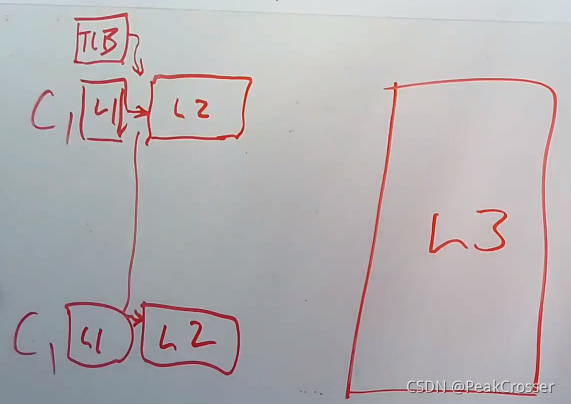 TLB
C1 L1 L2
L3
C1 L1 L2
CSDN @PeakCrosser